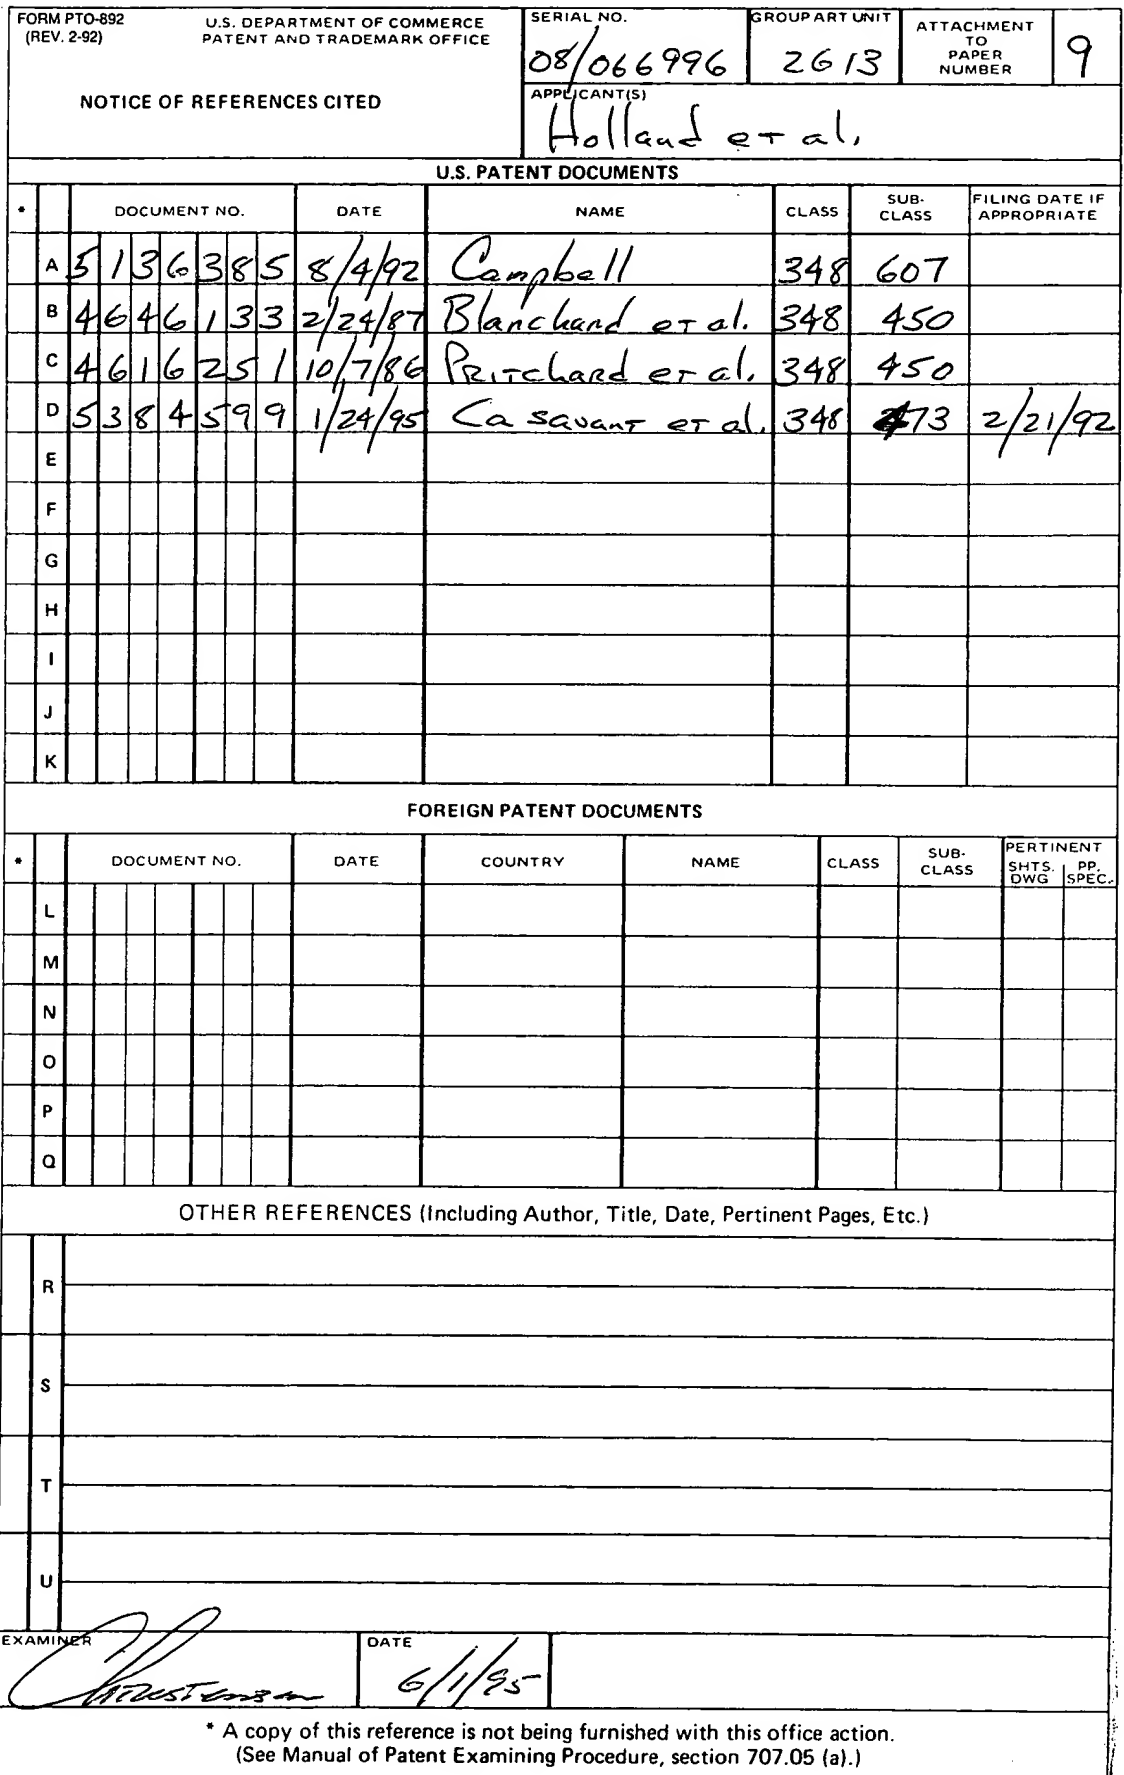 FORM PTO-892 U.S. DEPARTMENT OF COMMERCE
(REV. 2-92) PATENT AND TRADEMARK OFFICE
NOTICE OF REFERENCES CITED
SERIAL NO.
08/066996
GROUP ART UNIT
2613
ATTACHMENT
TO
PAPER
NUMBER
9
APPLICANT(S)
Holland et al.
U.S. PATENT DOCUMENTS
* DOCUMENT NO. DATE NAME CLASS SUB-CLASS FILING DATE IF APPROPRIATE
A 5136385 8/4/92 Campbell 348 607
B 4646133 2/24/87 Blanchard et al. 348 450
C 4616251 10/7/86 Pritchard et al. 348 450
D 5384599 1/24/95 Casavant et al. 348 473 2/21/92
E
F
G
H
I
J
K
FOREIGN PATENT DOCUMENTS
* DOCUMENT NO. DATE COUNTRY NAME CLASS SUB-CLASS PERTINENT SHTS. DWG PP. SPEC.
L
M
N
O
P
Q
OTHER REFERENCES (Including Author, Title, Date, Pertinent Pages, Etc.)
R
S
T
U
EXAMINER
DATE
6/1/95
* A copy of this reference is not being furnished with this office action.
(See Manual of Patent Examining Procedure, section 707.05 (a).)